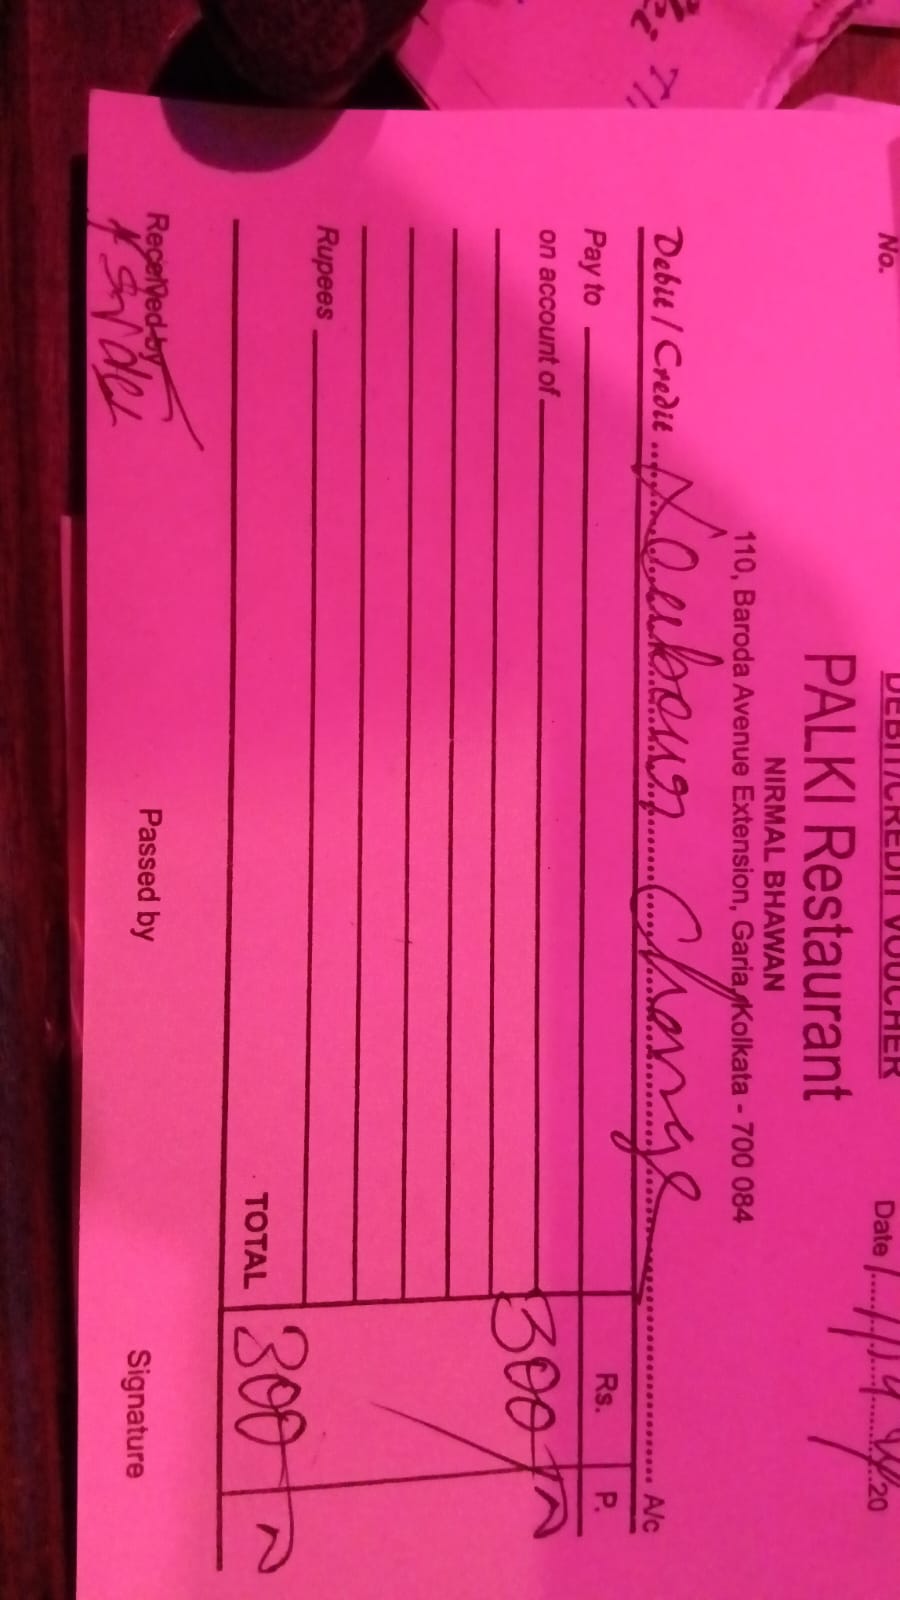 DEBIT/CREDIT VOUCHER
No.
Date
20
PALKI Restaurant
NIRMAL BHAWAN
110, Baroda Avenue Extension, Garia, Kolkata - 700 084
Debit / Credit Labour Charge A/c
Pay to Rs. P.
on account of 300
Rupees
TOTAL 300
Received by Passed by Signature